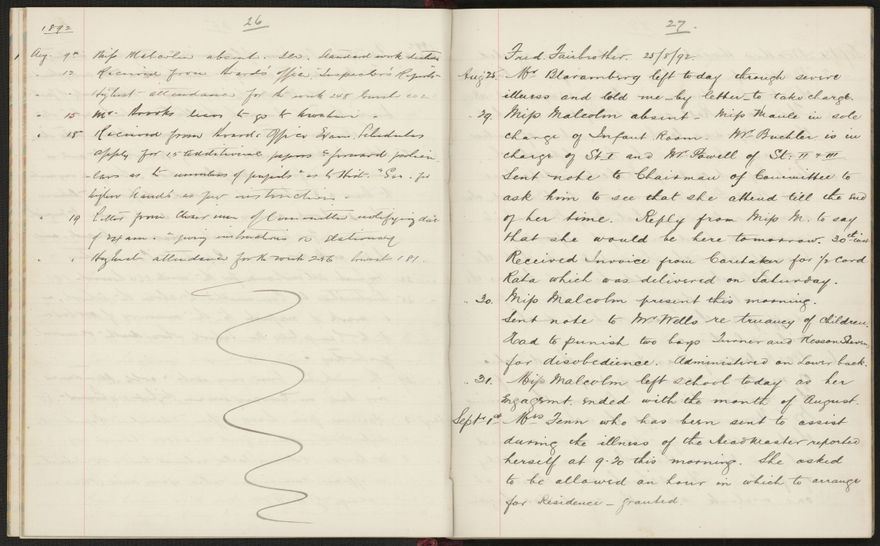 1892
26
Aug. 9th Miss Malcolm absent. Sec. Standard work
" 12 Received from Board's Office Inspector's Report
Highest attendance for the week 248 lowest
" 15 Mr. Brooks leaves to go to
" 18 Received from Board's Office Exam. Schedules
apply for 15 additional papers & forward
as to numbers of pupils as to Hist. Geo. for
higher Stand's as per instructions.
" 19 Letter from Chairman of Committee notifying
of Exam. giving instructions re Stationery
" " Highest attendance for the week 256 lowest 181.
27.
Fred. Fairbrother. 25/8/92.
Aug 25. Mr Blaramberg left today through severe
illness and told me by letter to take charge.
" 29. Miss Malcolm absent - Miss Maule in sole
charge of Infant Room. Mr Buehler is in
charge of St. I and Mr Powell of St. II & III
Sent note to Chairman of Committee to
ask him to see that she attend till the end
of her time. Reply from Miss M. to say
that she would be here tomorrow. 30th inst
Received Invoice from Caretaker for 1/2 cord
Rata which was delivered on Saturday.
" 30. Miss Malcolm present this morning.
Sent note to Mr Wells re truancy of children.
Had to punish two boys Turner and
for disobedience. Administered on lower back.
" 31. Miss Malcolm left school today as her
Engagemt. ended with the month of August.
Sept. 1st Mrs Fenn who has been sent to assist
during the illness of the Headmaster reported
herself at 9.30 this morning. She asked
to be allowed an hour in which to arrange
for Residence - granted.